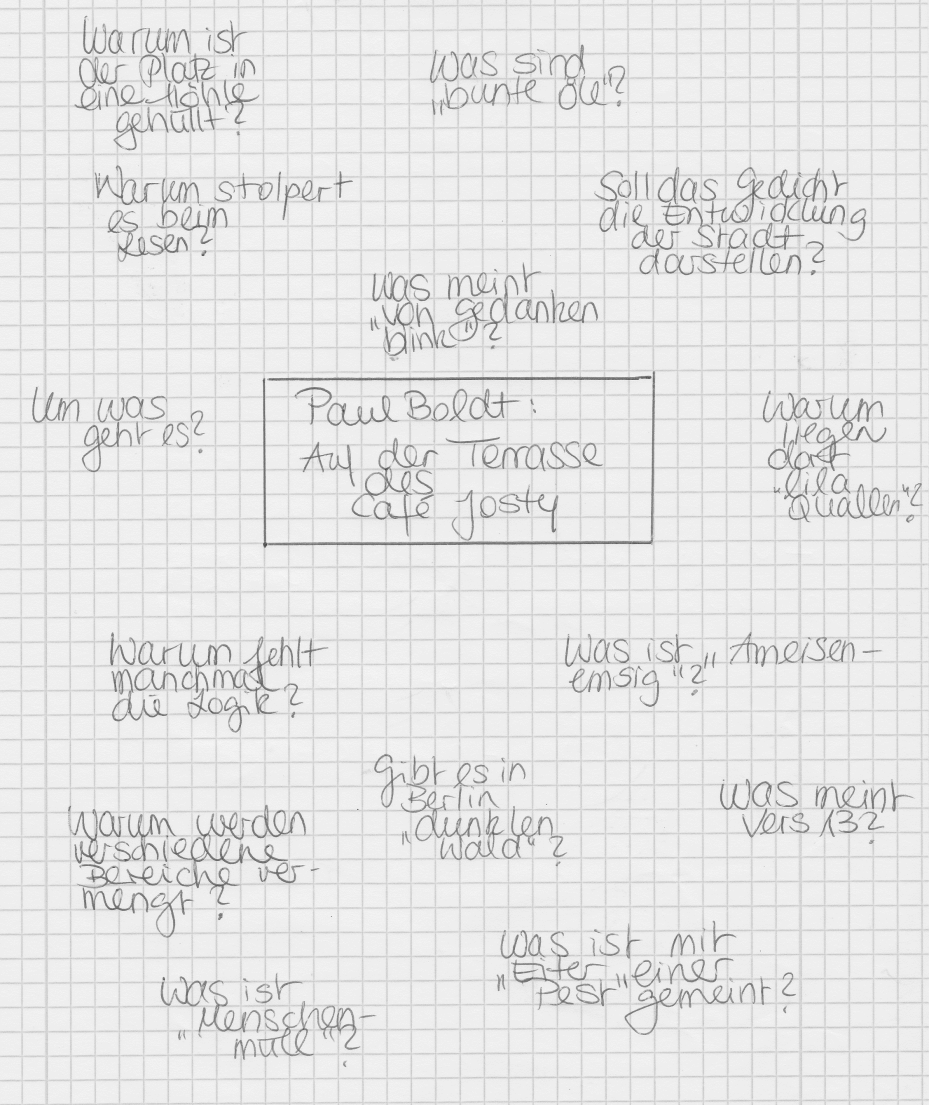 Warum ist
der Platz in
eine Höhle
gehüllt?
Was sind
„bunte Öle"?
Warum stolpert
es beim
Lesen?
Soll das Gedicht
die Entwicklung
der Stadt
darstellen?
Was meint
„von Gedanken
blink"?
Um was
geht es?
Paul Boldt:
Auf der Terrasse
des
Café Josty
Warum
liegen
dort
„lila
Quallen"?
Warum fehlt
manchmal
die Logik?
Was ist „Ameisen-
emsig"?
Gibt es in
Berlin
„dunklen
Wald"?
Was meint
Vers 13?
Warum werden
verschiedene
Bereiche ver-
mengt?
Was ist mit
„Eiter einer
Pest" gemeint?
Was ist
„Menschen-
müll"?